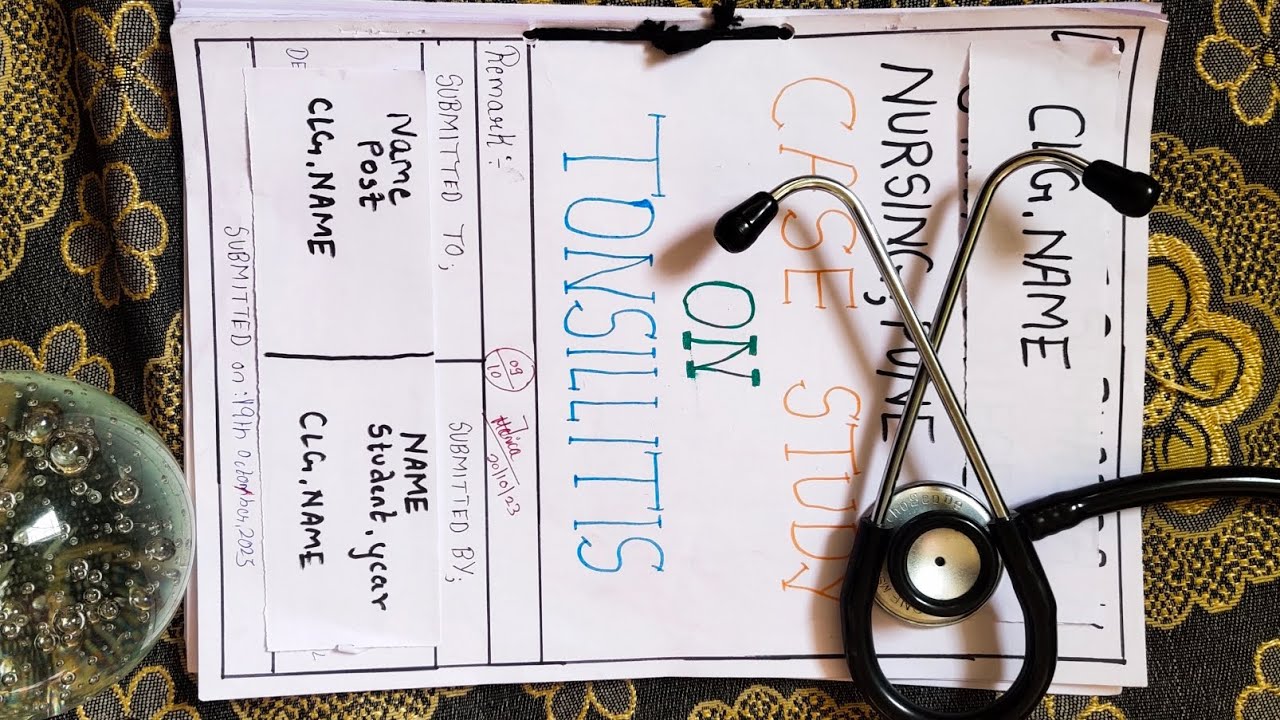 CLG.NAME
NURSING, PUNE
CASE STUDY
ON
TONSILLITIS
Remark:-
09/10
20/10/23
SUBMITTED TO;
SUBMITTED BY;
Name
Post
CLG.NAME
NAME
Student.year
CLG.NAME
SUBMITTED on:19th October,2023